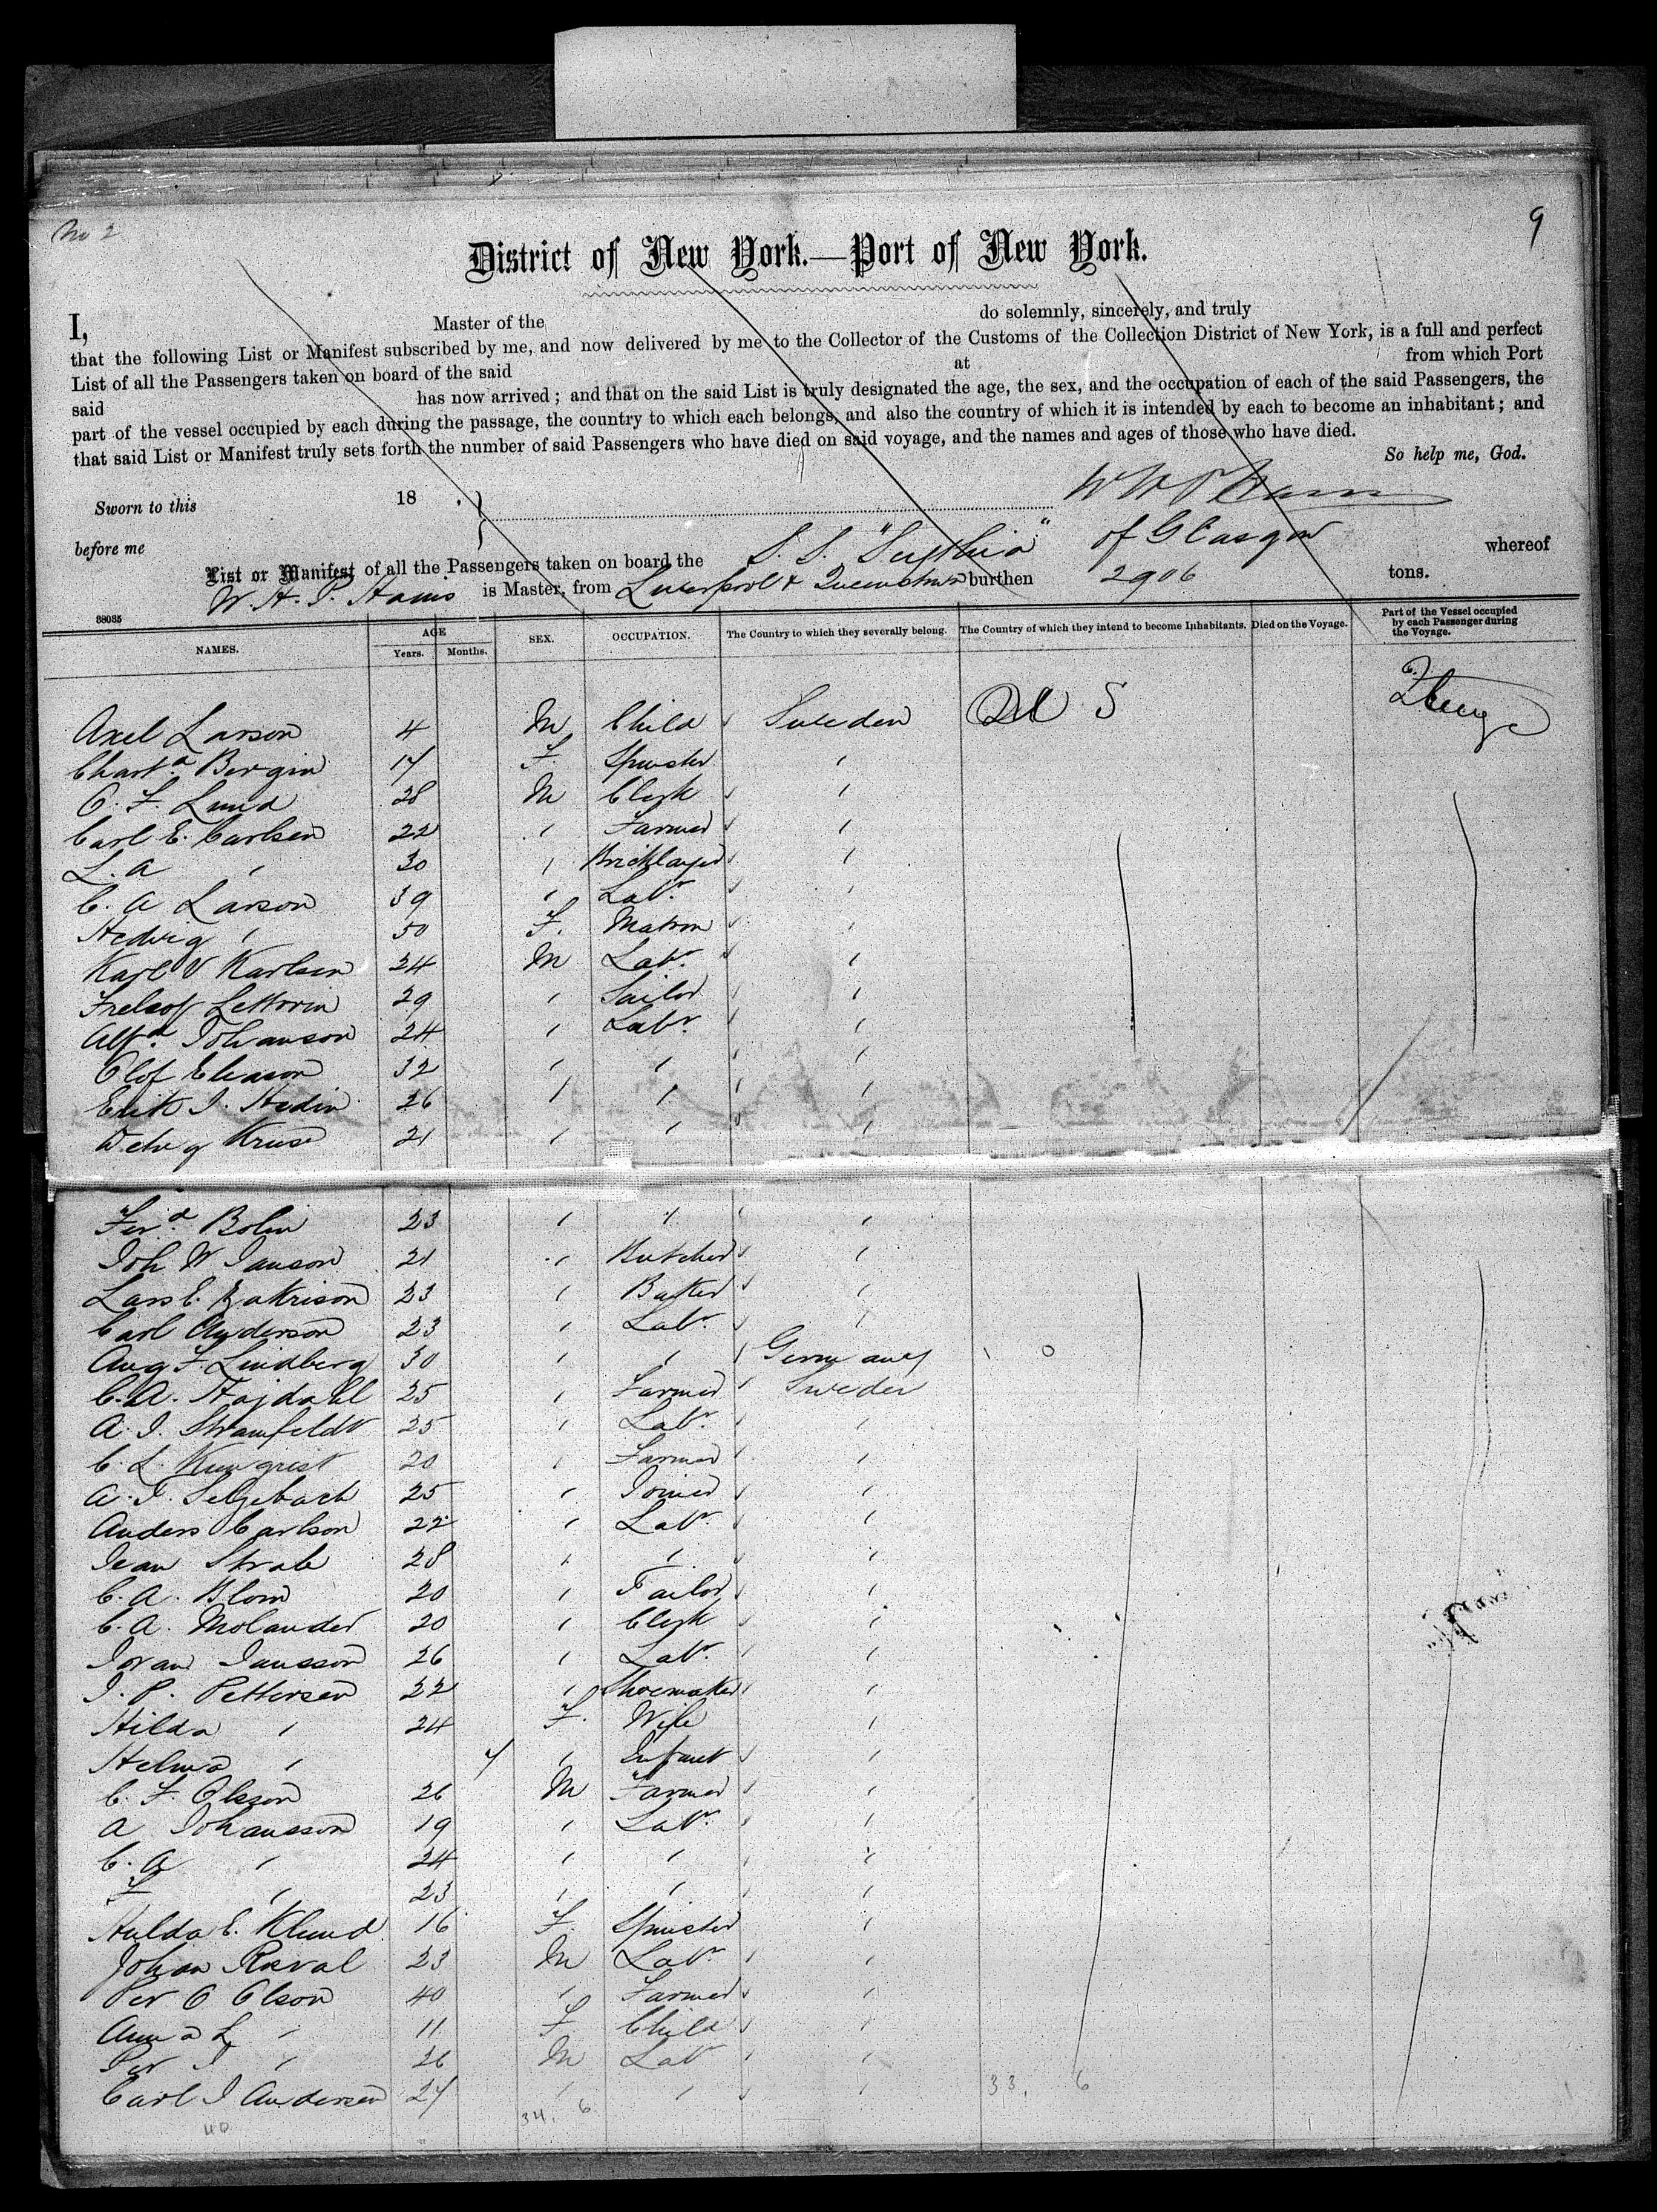 No 2
9
District of New York.—Port of New York.
I, Master of the do solemnly, sincerely, and truly
that the following List or Manifest subscribed by me, and now delivered by me to the Collector of the Customs of the Collection District of New York, is a full and perfect
List of all the Passengers taken on board of the said at from which Port
said has now arrived; and that on the said List is truly designated the age, the sex, and the occupation of each of the said Passengers, the
part of the vessel occupied by each during the passage, the country to which each belongs, and also the country of which it is intended by each to become an inhabitant; and
that said List or Manifest truly sets forth the number of said Passengers who have died on said voyage, and the names and ages of those who have died.
So help me, God.
Sworn to this 18 .
before me
List or Manifest of all the Passengers taken on board the S. S. "Scythia" of Glasgow whereof
W. H. P. Hains is Master, from Liverpool & Queenstown burthen 2906 tons.
38035
NAMES. AGE Years. Months. SEX. OCCUPATION. The Country to which they severally belong. The Country of which they intend to become Inhabitants. Died on the Voyage. Part of the Vessel occupied by each Passenger during the Voyage.
Axel Larson 4 M Child Sweden U S
Charta Bergin 17 F. Spinster "
C. F. Lund 28 M Clerk "
Carl E. Carlsen 22 " Farmer "
L. A " 30 " Bricklayer "
C. A Larson 39 " Labr. "
Hedvig " 50 F. Matron "
Karl V Karlsen 24 M Labr. "
29 " "
Alfd Johanson 24 " Labr. "
Olof Eleason 32 " " "
Erik J. Hedin 26 " " "
Kruse 21 " " "
Ferd Bolin 23 " " "
Joh W Janson 21 " Butcher "
Lars E. 23 " "
Carl Anderson 23 " Labr. "
Aug F. Lindberg 30 " " Germany
C. A. Hojdahl 25 " Farmer Sweden
A. J. 25 " Labr. "
C. L. 20 " Farmer "
A. 25 " Joiner "
Anders Carlson 22 " Labr. "
Jean 28 " " "
C. A. Blom 20 " Tailor "
C. A. Molander 20 " Clerk "
Jansson 26 " Labr. "
J. P. Pettersen 22 " Shoemaker "
Hilda " 24 F. Wife "
Helma " 7 " Infant "
C. F. Olsson 26 M Farmer "
A Johansson 19 " Labr. "
C. A " 24 " " "
" 23 " " "
Hulda E. Klund 16 F. Spinster "
Johan 23 M Labr "
Per O Olson 40 " Farmer "
Anna L " 11 F Child "
Per J " 26 M Labr "
Carl J Andersen 27 " " "
40 34. 6 33. 6